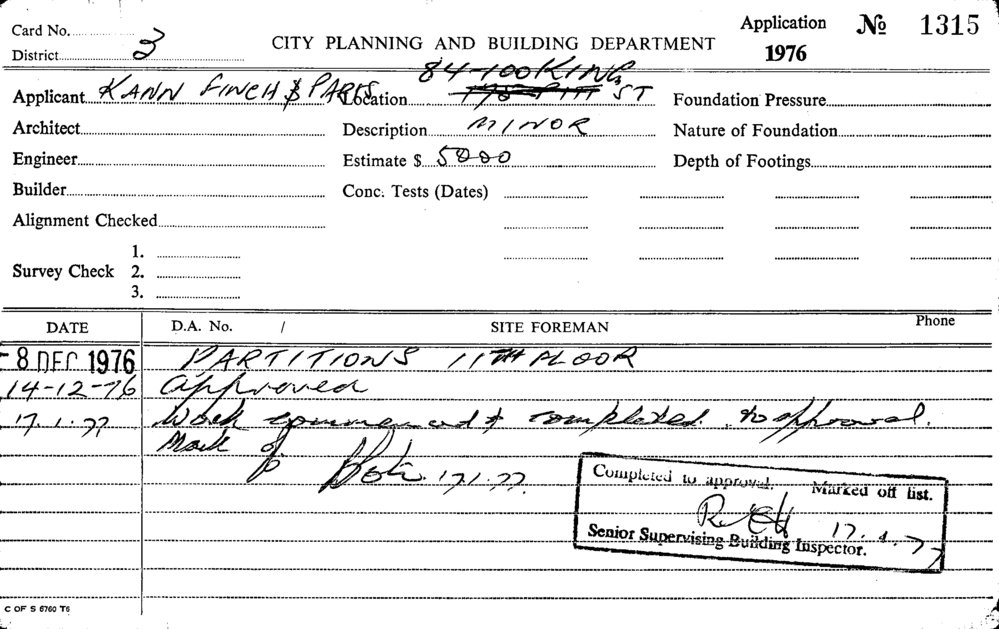 Card No. Application № 1315
District 3 CITY PLANNING AND BUILDING DEPARTMENT 1976
84-100 KING
Applicant KANN FINCH & PARTS Location ST Foundation Pressure
Architect Description MINOR Nature of Foundation
Engineer Estimate $ 5000 Depth of Footings
Builder Conc. Tests (Dates)
Alignment Checked
1.
Survey Check 2.
3.
DATE D.A. No. / SITE FOREMAN Phone
- 8 DEC 1976 PARTITIONS 11TH FLOOR
14-12-76 Approved
17.1.77 Work commenced & completed to approval.
Mark 17.1.77.
Completed to approval. Marked off list.
17.1.77
Senior Supervising Building Inspector.
C OF S 6760 T6